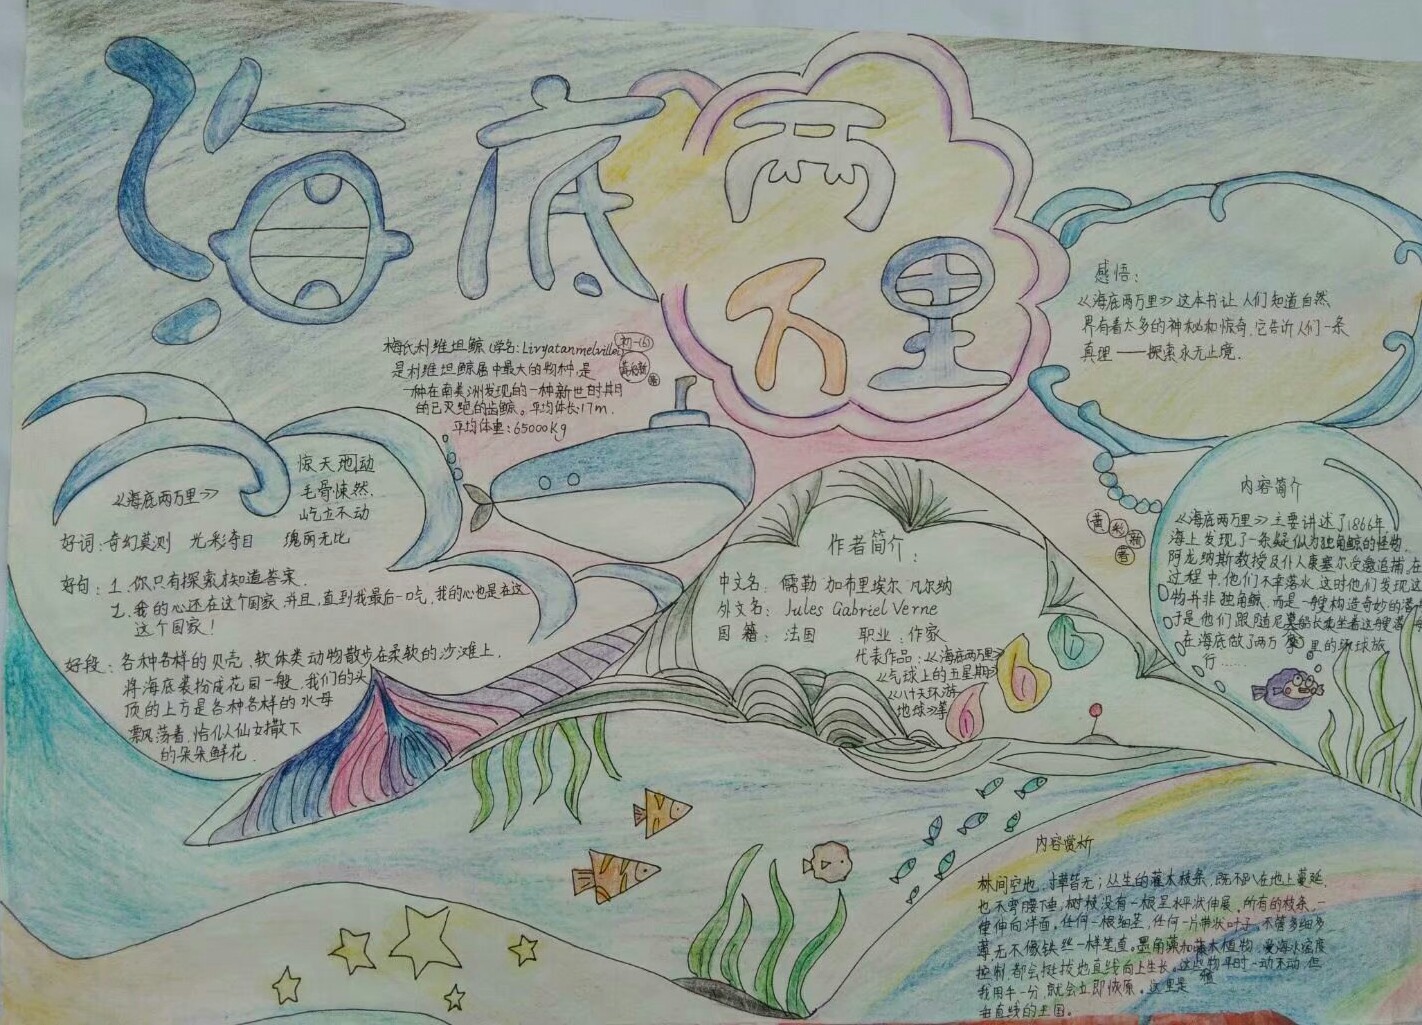 海底
两
万里
梅氏利维坦鲸(学名:Livyatanmelvillei)
是利维坦鲸属中最大的物种,是
一种在南美洲发现的一种新世时期
的已灭绝的齿鲸。平均体长:17m.
平均体重:65000Kg
初一(6)
感悟:
《海底两万里》这本书让人们知道自然
界有着太多的神秘和惊奇,它告诉人们一条
真理——探索永无止境.
惊天动地
毛骨悚然.
屹立不动
《海底两万里》
好词:奇幻莫测 光彩夺目 瑰丽无比
好句:1.你只有探索才知道答案.
2.我的心还在这个国家,并且,直到我最后一口气,我的心也是在这
这个国家!
好段:各种各样的贝壳,软体类动物散步在柔软的沙滩上.
将海底装扮成花园一般,我们的头
顶的上方是各种各样的水母
飘荡着,恰似仙女撒下
的朵朵鲜花.
作者简介:
中文名:儒勒 加布里埃尔 凡尔纳
外文名:Jules Gabriel Verne
国籍:法国 职业:作家
代表作品:《海底两万里》
《气球上的五星期》
《八十天环游
地球》等
黄彩
著
内容简介
《海底两万里》主要讲述了1866年,
海上发现了一条疑似为独角鲸的怪物,
阿龙纳斯教授及仆人康塞尔受邀追捕,在
过程中,他们不幸落水,这时他们发现这
物并非独角鲸,而是一艘构造奇妙的潜
于是他们跟随尼莫船长乘坐着这艘潜
在海底做了两万里的环球旅
行……
内容赏析
林间空地,寸草皆无;丛生的灌木枝条,既不趴在地上蔓延,
也不弯腰下垂,树枝没有一根呈水平状伸展。所有的枝条,一
律伸向洋面,任何一根细茎,任何一片带状叶子,不管多细多
薄,无不像铁丝一样笔直。墨角藻和藤本植物,受海水密度
控制,都会挺拔地直线向上生长。这些植物平时一动不动,但
我用手一分,就会立即恢原。这里是
垂直线的王国。